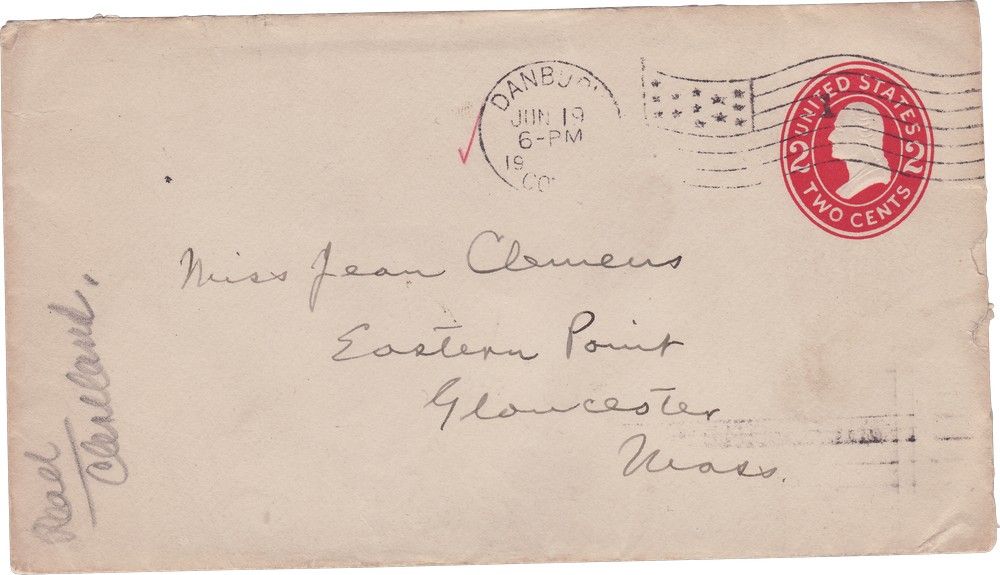 DANBU
JUN 19
6-PM
19
CO
1
UNITED STATES
2 2
TWO CENTS
Miss Jean Clemens
Eastern Point
Gloucester
Mass.